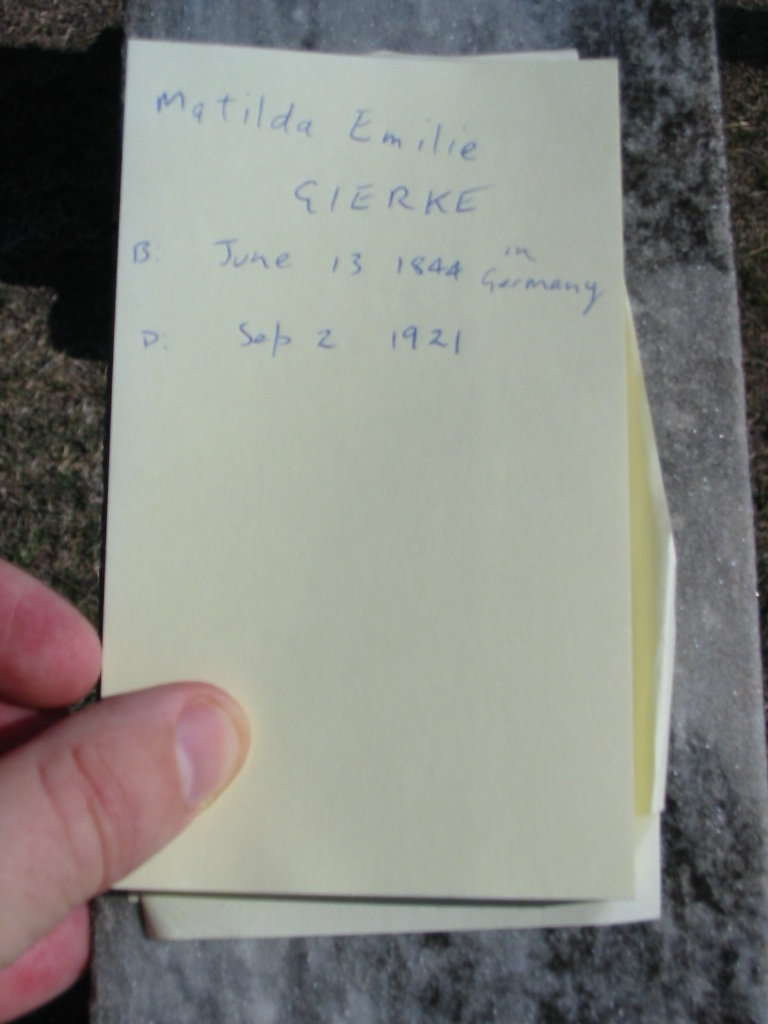 Matilda Emilie
GIERKE
B: June 13 1844 in Germany
D: Sep 2 1921